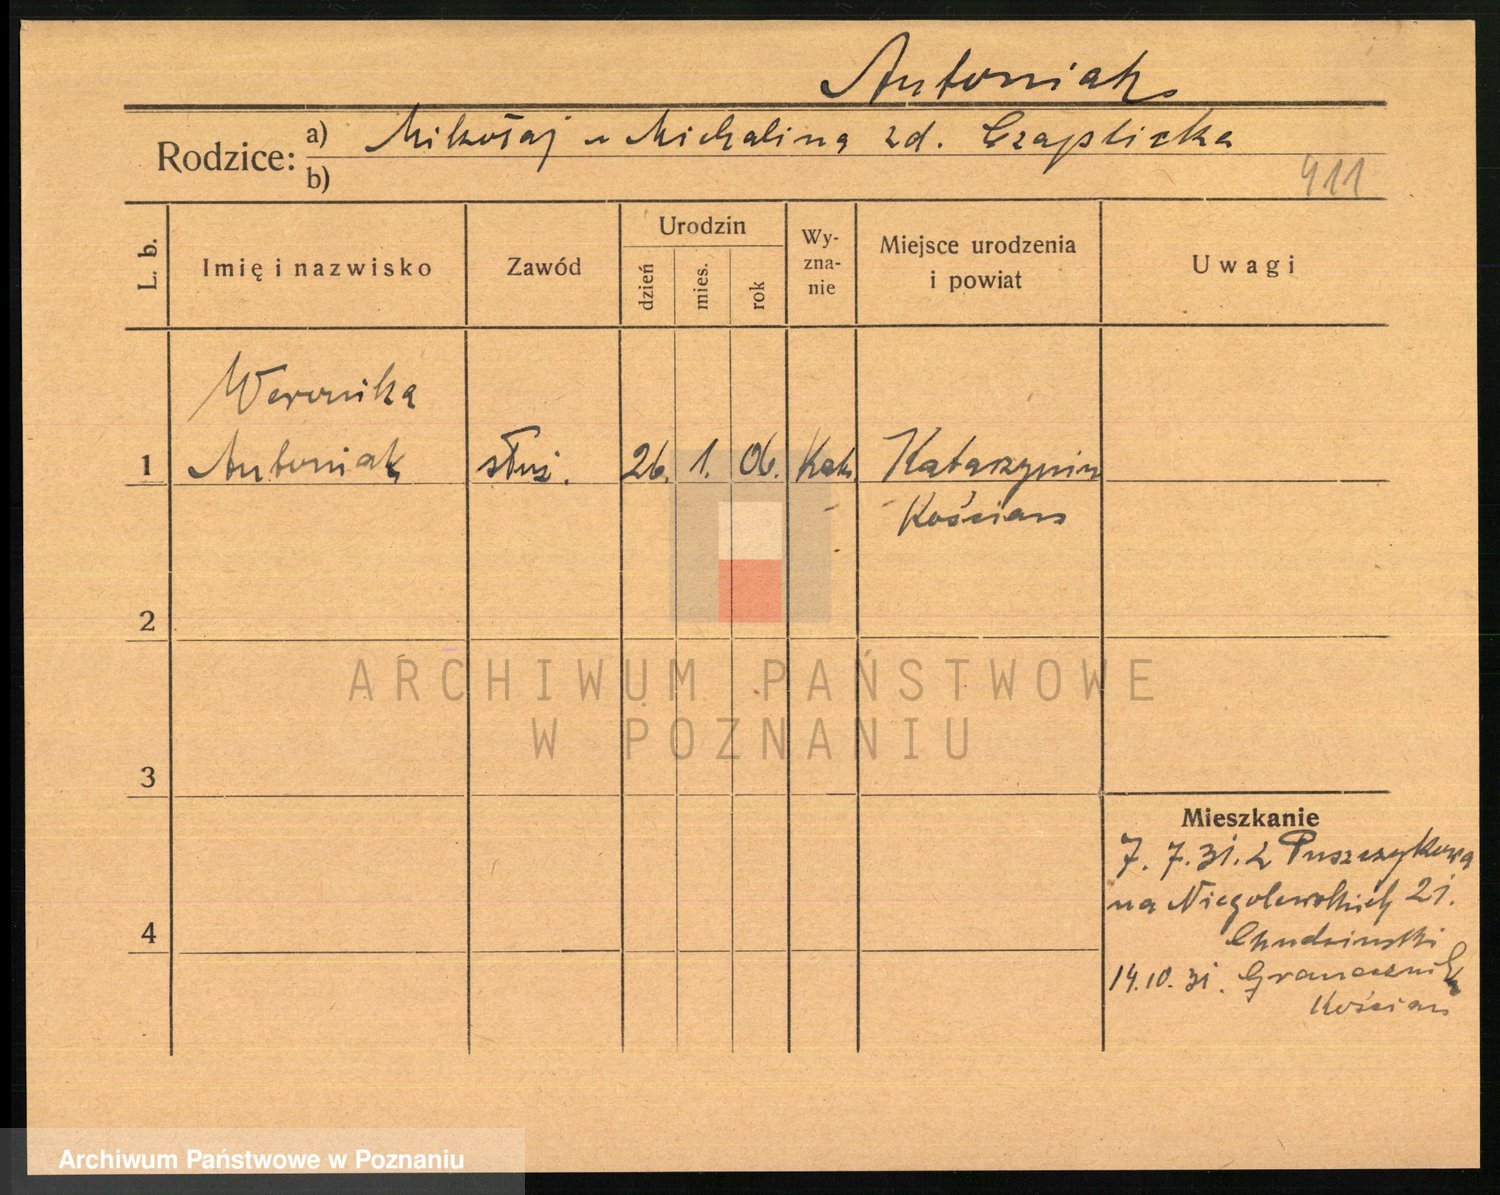 Antoniak
Rodzice: a) Mikołaj u Michalina zd. Czaplicka
b)
911
L. b. Imię i nazwisko Zawód Urodzin dzień mies. rok Wyznanie Miejsce urodzenia i powiat Uwagi
Weronika
1 Antoniak służ. 26. 1. 06. Kat. Katarzynin
Kościan
2
ARCHIWUM PAŃSTWOWE
W POZNANIU
3
Mieszkanie
7. 7. 31. z Puszczykowa
na Niegolewskich 21.
4
Chudzinski
14.10.31. Granecznik
Kościan
Archiwum Państwowe w Poznaniu